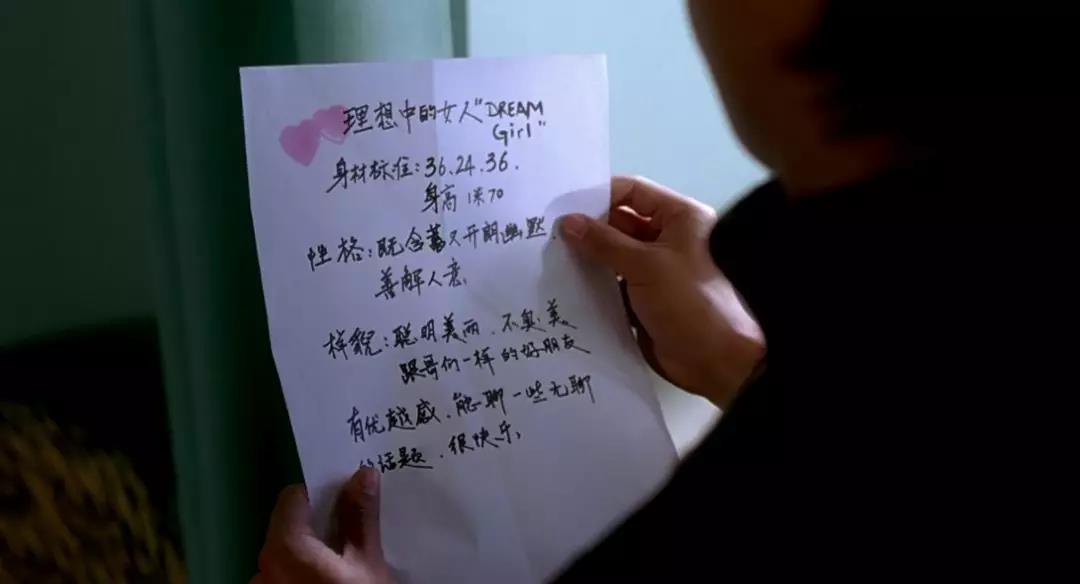 理想中的女人"DREAM
Girl"
身材标准:36.24.36.
身高1米70
性格:既含蓄又开朗幽默.
善解人意
样貌:聪明美丽.不臭美
跟哥们一样的好朋友
有优越感.能聊一些无聊
的话题.很快乐,